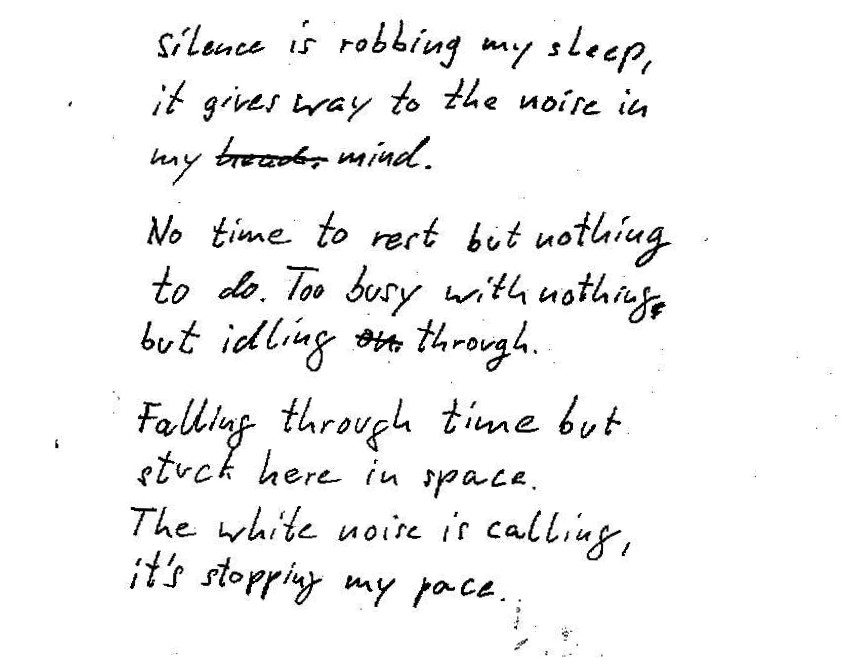 Silence is robbing my sleep,
it gives way to the noise in
my head. mind.
No time to rest but nothing
to do. Too busy with nothing,
but idling on. through.
Falling through time but
stuck here in space.
The white noise is calling,
it's stopping my pace.